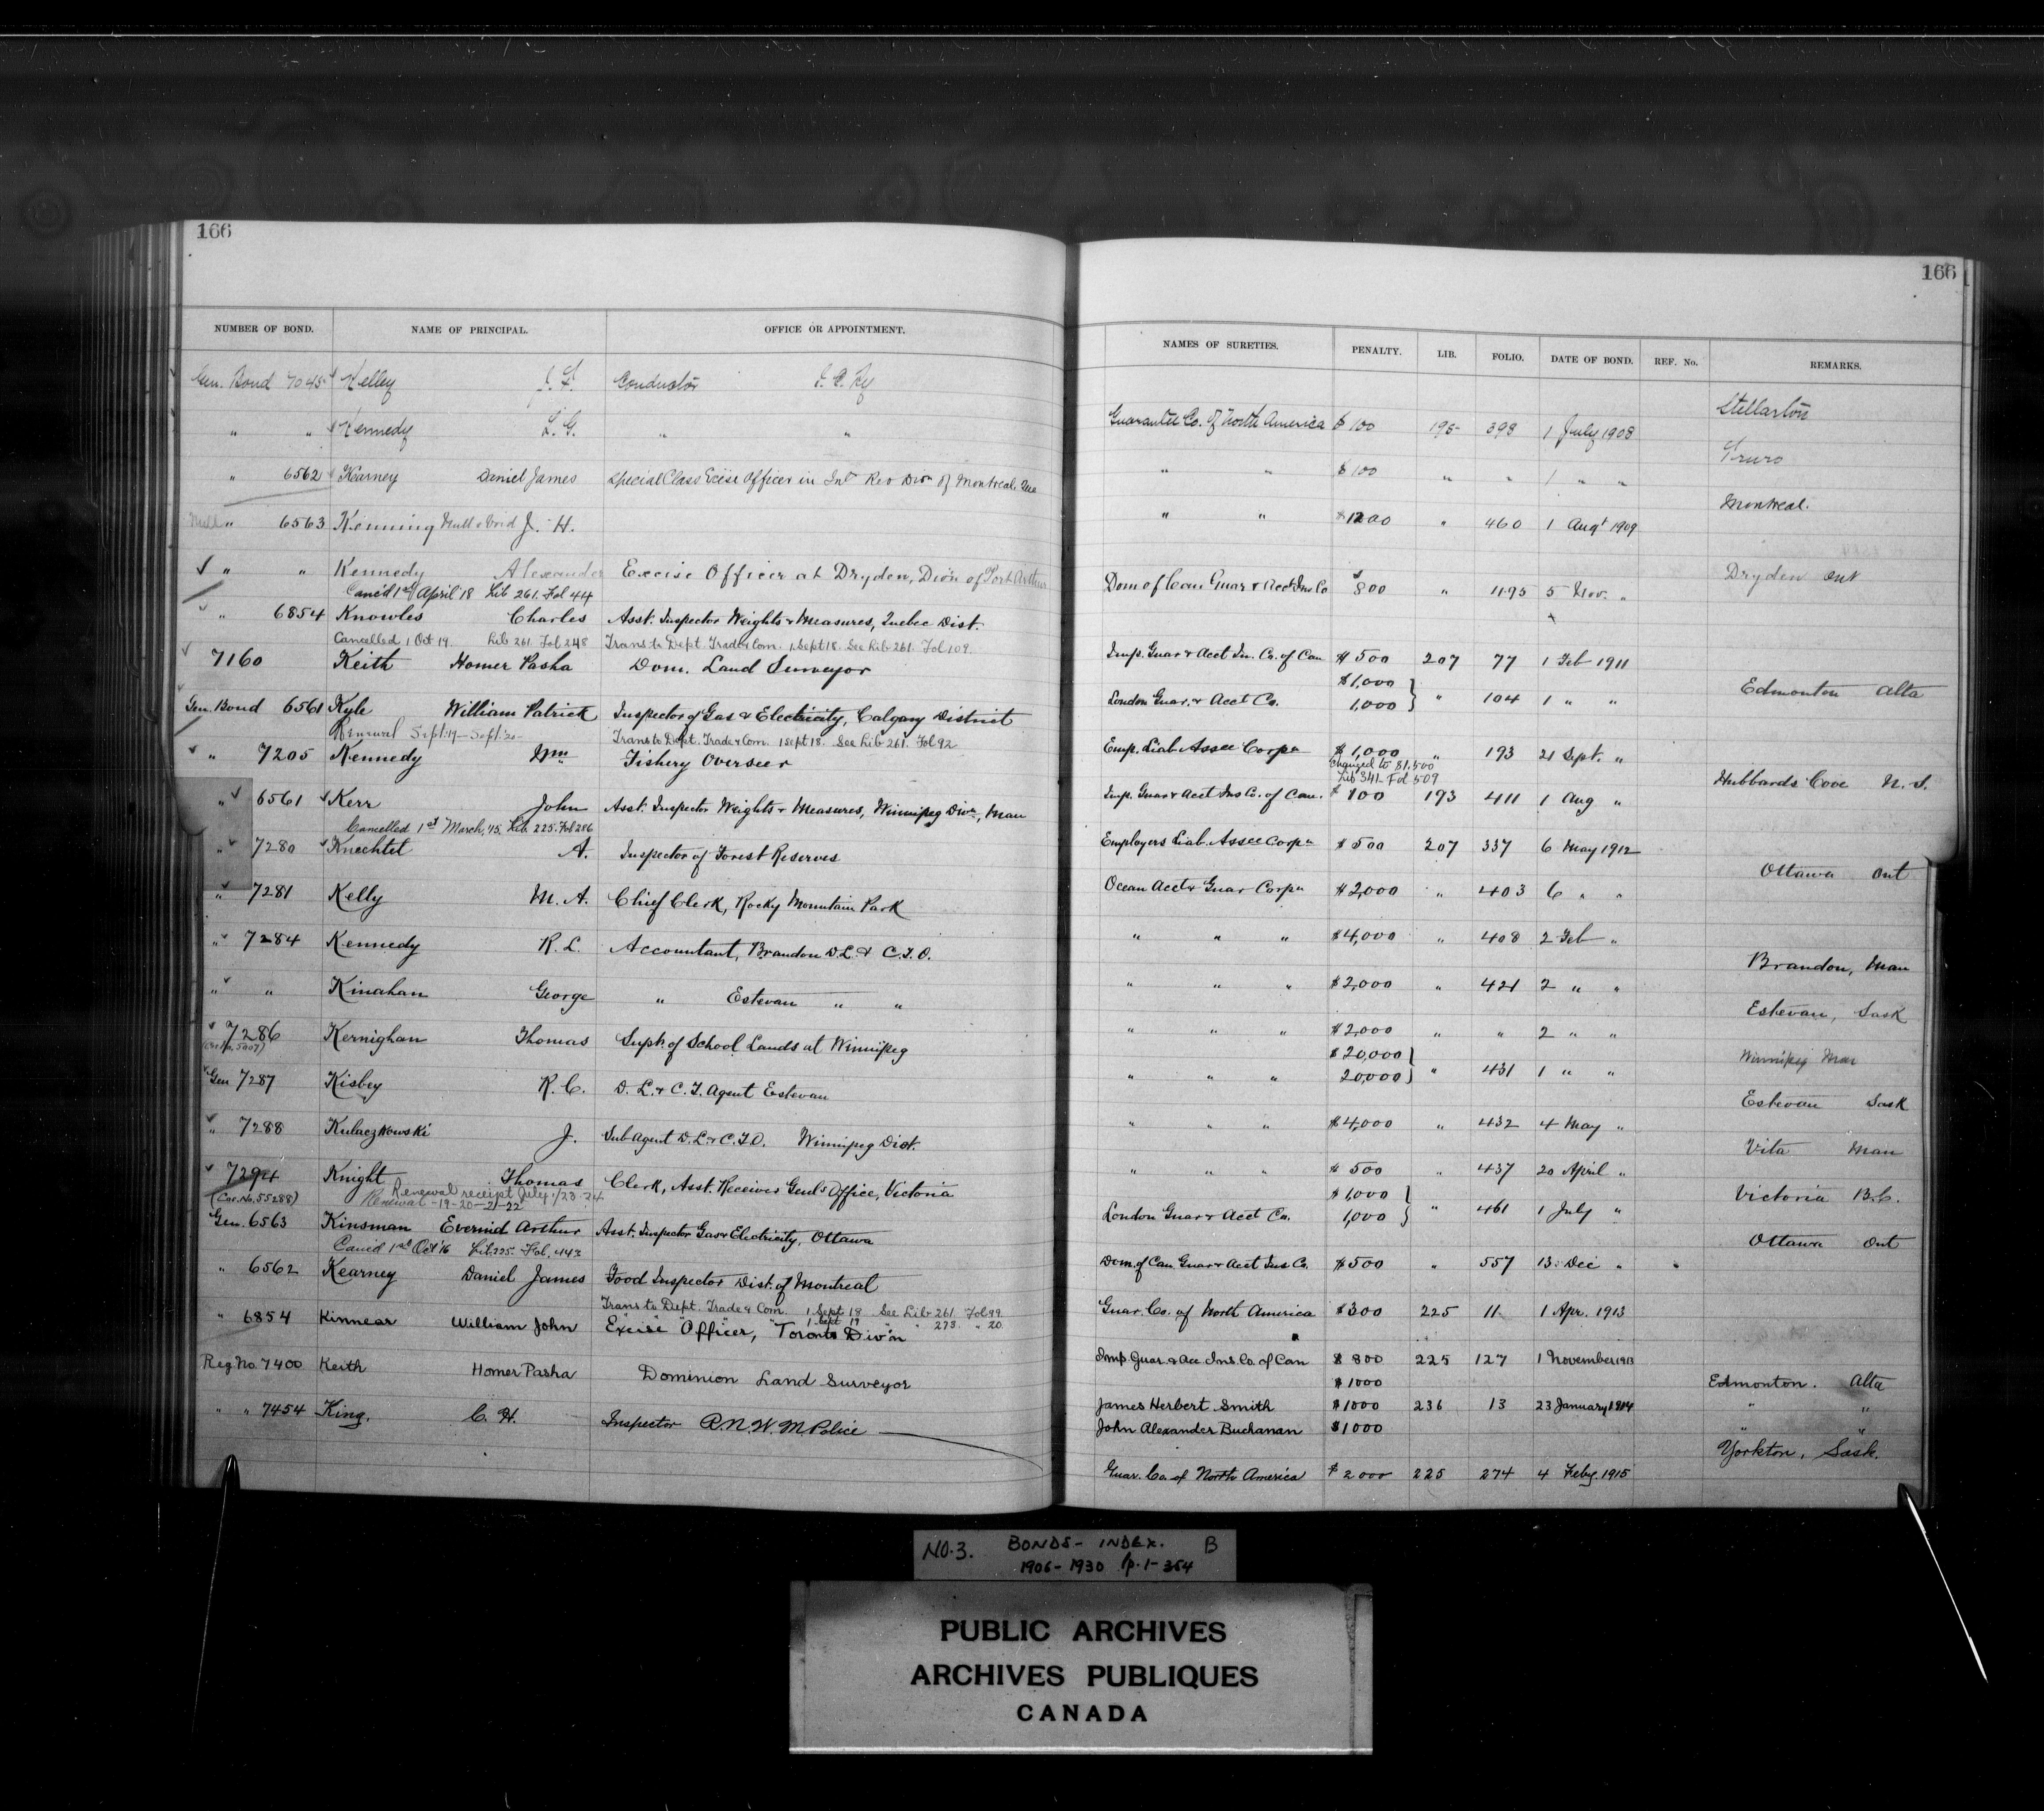 166
166
NUMBER OF BOND. NAME OF PRINCIPAL. OFFICE OR APPOINTMENT. NAMES OF SURETIES. PENALTY. LIB. FOLIO. DATE OF BOND. REF. No. REMARKS.
Gen. Bond 7045 Kelley Conductor Guarantee Co. of North America $100 195 398 1 July 1908 Stellarton
" " Kennedy L. G. " " " " $100 " " 1 " " Truro
" 6562 Kearney Daniel James Special Class Excise Officer in Inl Rev Divn of Montreal. Que " " $1200 " 460 1 Augt 1909 Montreal.
" 6563 Kenning Null & Void J. H.
" " Kennedy Alexander Excise Officer at Dryden, Div'n of Port Arthur Dom of Can Guar & Acct Ins Co $800 " 1195 5 Nov. " Dryden Ont
Canc'd 1st April 18 Lib 261. Fol 44
" 6854 Knowles Charles Asst. Inspector Weights & Measures, Quebec Dist. Imp. Guar & Acct In. Co. of Can $500 207 77 1 Feb 1911
Cancelled 1 Oct 19. Lib 261 Fol 248 Trans to Dept. Trade & Com. 1 Sept 18. See Lib 261. Fol 109.
7160 Keith Homer Pasha Dom. Land Surveyor London Guar. & Acct Co. $1,000 1,000 " 104 1 " " Edmonton Alta
Gen. Bond 6561 Kyle William Patrick Inspector of Gas & Electricity, Calgary District Emp. Liab Assce Corpn $1,000 " 193 21 Sept. "
Renewal Sept. 19 - Sept. 20 Trans to Dept. Trade & Com. 1 Sept 18. See Lib 261. Fol 92 Changed to $1,500 Lib 341 - Fol 509
" 7205 Kennedy Wm Fishery Overseer Imp. Guar & Acct Ins Co. of Can. $100 193 411 1 Aug " Hubbards Cove N. S.
" 6561 Kerr John Asst. Inspector Weights & Measures, Winnipeg Divn, Man Employers Liab. Assce Corpn $500 207 337 6 May 1912
Cancelled 1st March, 15. Lib. 225. Fol 286
" 7280 Knechtel A. Inspector of Forest Reserves Ocean Acct & Guar Corpn $2,000 " 403 6 " " Ottawa Ont
" 7281 Kelly M. A. Chief Clerk, Rocky Mountain Park " " " $4,000 " 408 2 Feb "
" 7284 Kennedy R. L. Accountant, Brandon D. L. & C. T. O. " " " $2,000 " 421 2 " " Brandon, Man
" " Kinahan George " Estevan " " " " " $2,000 " " 2 " " Estevan, Sask
7286 Kernighan Thomas Supt. of School Lands at Winnipeg " " " $20,000 20,000 " 431 1 " " Winnipeg Man
Gen 7287 Kisbey R. C. D. L. & C. T. Agent Estevan " " " $4,000 " 432 4 May " Estevan Sask
" 7288 Kulaczkowski J. Sub Agent D. L. & C. T. O. Winnipeg Dist. " " " $500 " 437 20 April " Vita Man
7294 Knight Thomas Clerk, Asst. Receiver Genl's Office, Victoria London Guar & Acct Co. $1,000 1,000 " 461 1 July " Victoria B.C.
(Cae. No. 55288) Renewal receipt July 1/23-24 Renewal -19-20-21-22
Gen. 6563 Kinsman Everind Arthur Asst. Inspector Gas & Electricity, Ottawa Dom. of Can. Guar & Acct Ins Co. $500 " 557 13 Dec " Ottawa Ont
Canc'd 1st Oct '16 Lib. 225. Fol. 443
" 6562 Kearney Daniel James Food Inspector Dist. of Montreal Guar. Co. of North America $300 225 11 1 Apr. 1913
Trans to Dept. Trade & Com. 1 Sept 18 See Lib 261. Fol 99.
" " " 1 Sept 19 " " 273. " 20.
" 6854 Kinnear William John Excise Officer, Toronto Div'n Imp. Guar. & Acc. Ins. Co. of Can $800 225 127 1 November 1913
Reg. No. 7400 Keith Homer Pasha Dominion Land Surveyor $1000 Edmonton. Alta
James Herbert Smith $1000 236 13 23 January 1914 " "
John Alexander Buchanan $1000 " "
" " 7454 King. C. H. Inspector R. N. W. M. Police Guar. Co. of North America $2000 225 274 4 Feby. 1915 Yorkton, Sask.
NO. 3. BONDS - INDEX. B
1906 - 1930 p. 1 - 364
PUBLIC ARCHIVES
ARCHIVES PUBLIQUES
CANADA